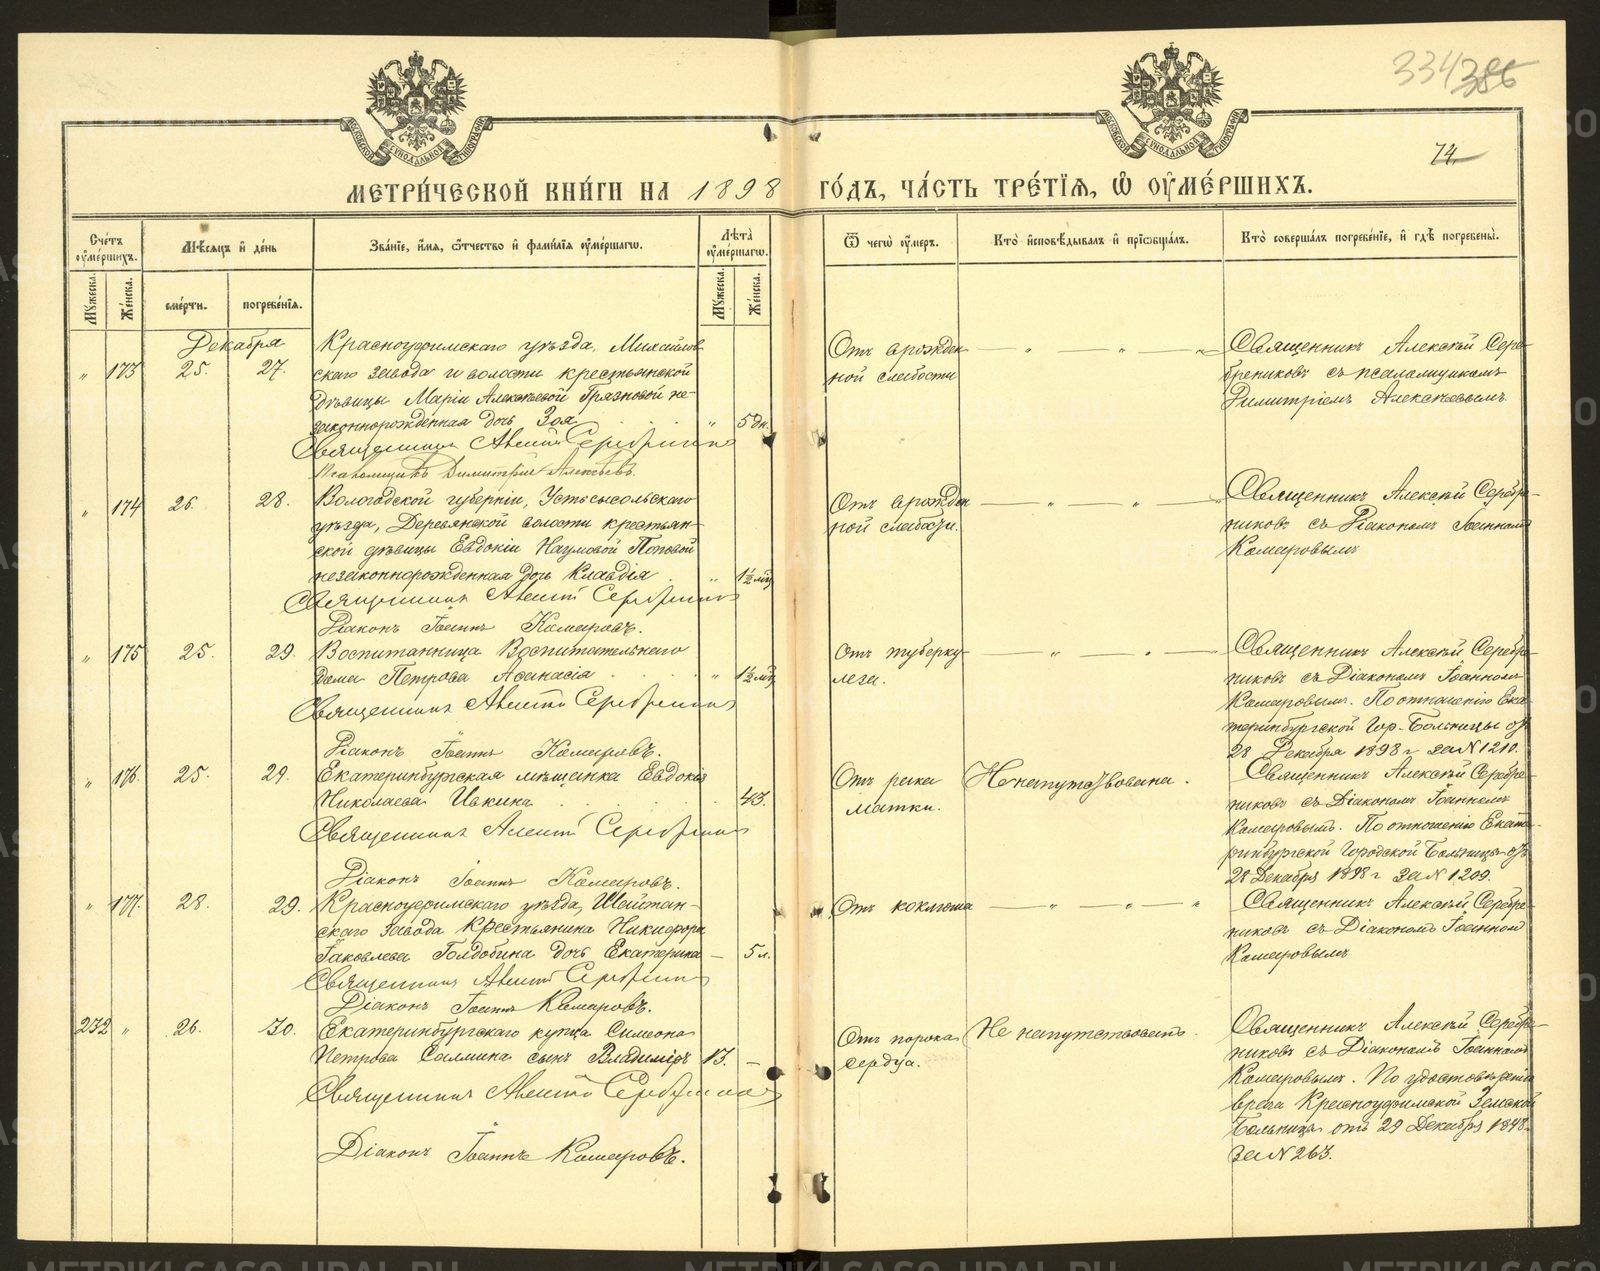 334 386
74
МЕТРИ́ЧЕСКОЙ КНИ́ГИ НА 1898 ГО́ДЪ, ЧА́СТЬ ТРЕ́ТІѦ, Ѡ҆ ОУ҆МЕ́РШИХЪ.
Сче́тъ оу҆ме́ршихъ.
Мѣ́сяцъ и҆ де́нь
Зва́нїе, и҆́мя, ѻ҆́тчество и҆ фами́лїя оу҆ме́ршагѡ.
Лѣ́та оу҆ме́ршагѡ.
Ѿ чегѡ̀ оу҆́меръ.
Кто̀ и҆сповѣ́дывалъ и҆ прїѡбща́лъ.
Кто̀ соверша́лъ погребе́нїе, и҆ гдѣ̀ погребены̀.
Мꙋ́жеска.
Же́нска.
сме́рти.
погребе́нїя.
Мꙋ́жеска.
Же́нска.
Декабря
" 173 25. 27.
Красноуфимскаго уѣзда, Михайлов
скаго завода и волости крестьянской
дѣвицы Маріи Алексѣевой Грязновой не-
законнорожденная дочь Зоя " 5 дн.
Священникъ Алексѣй Серебрениковъ
Псаломщикъ Димитрій Алексѣевъ.
Отъ врожден
ной слабости
Священникъ Алексѣй Сере-
брениковъ съ псаломщикомъ
Димитріемъ Алексѣевымъ.
" 174 26. 28.
Вологодской губерніи, Устьсысольскаго
уѣзда, Деревянской волости крестьян-
ской дѣвицы Евдокіи Наумовой Поповой
незаконнорожденная дочь Клавдія " 1½ мц
Священникъ Алексѣй Серебрениковъ
Діаконъ Іоаннъ Комаровъ.
Отъ врожден
ной слабости.
Священникъ Алексѣй Серебре-
никовъ съ Діакономъ Іоанномъ
Комаровымъ
" 175 25. 29.
Воспитанница Воспитательнаго
дома Петрова Афанасія " 1½ мц
Священникъ Алексѣй Серебрениковъ
Діаконъ Іоаннъ Комаровъ.
Отъ туберку-
леза.
Священникъ Алексѣй Серебре-
никовъ съ Діакономъ Іоанномъ
Комаровымъ. По отношенію Ека-
теринбургской Гор. Больницы отъ
28 Декабря 1898 г за № 1210.
" 176. 25. 29.
Екатеринбургская мѣщанка Евдокія
Николаева Ивкина 43.
Священникъ Алексѣй Серебрениковъ
Діаконъ Іоаннъ Комаровъ.
Отъ рака
матки.
Не напутствована.
Священникъ Алексѣй Серебре-
никовъ съ Діакономъ Іоанномъ
Комаровымъ. По отношенію Екате-
ринбургской Городской Больницы отъ
28 Декабря 1898 г за № 1209.
" 177. 28. 29.
Красноуфимскаго уѣзда, Шайтан-
скаго завода крестьянина Никифора
Іаковлева Голдобина дочь Екатерина — 5 л.
Священникъ Алексѣй Серебрениковъ
Діаконъ Іоаннъ Комаровъ.
Отъ коклюша
Священникъ Алексѣй Серебре-
никовъ съ Діакономъ Іоанномъ
Комаровымъ
232 " 26. 30.
Екатеринбургскаго купца Симеона
Петрова сынъ Владиміръ 13. —
Священникъ Алексѣй Серебрениковъ
Діаконъ Іоаннъ Комаровъ.
Отъ порока
сердца.
Не напутствованъ.
Священникъ Алексѣй Серебре-
никовъ съ Діакономъ Іоанномъ
Комаровымъ. По удостовѣренію
врача Красноуфимской Земской
больницы отъ 29 Декабря 1898.
за № 263.